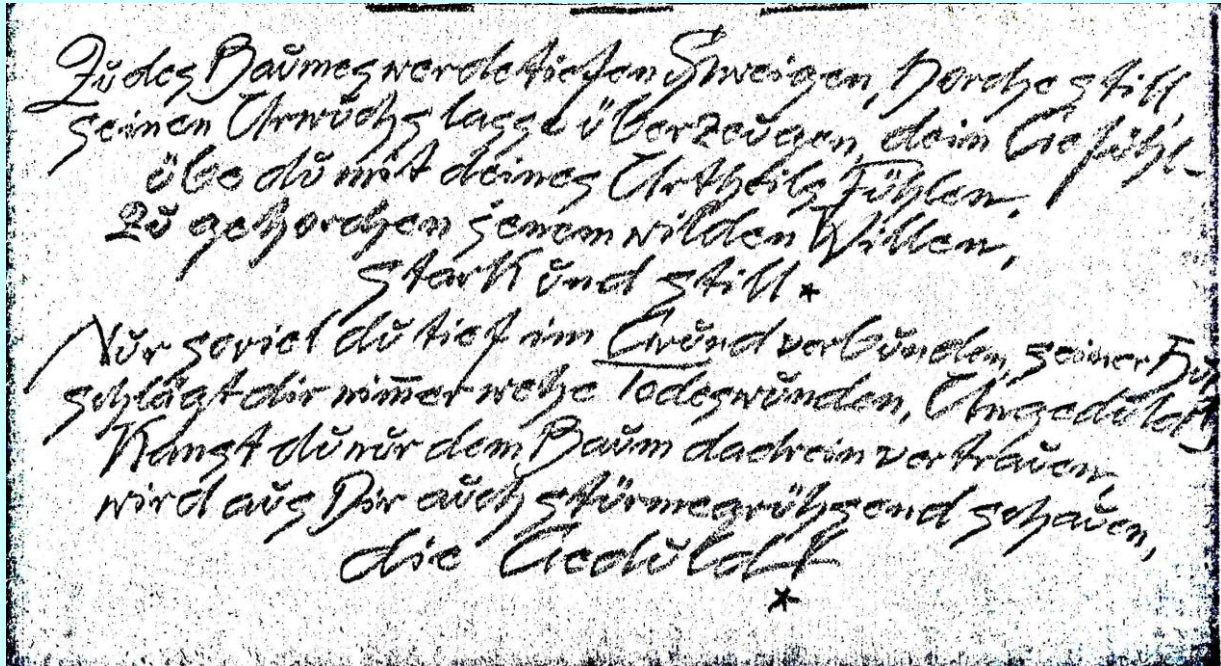 Zu des Baumes werdetiefen Shweigen, horche still,
seinen Urwuchs lasse überzeugen, dein Gefühl -
übe du mit deines Urtheils Fühlen.
Zu gehorchen jenem wilden Willen,
stark und still *
Nur soviel du tief im Grund verbunden, seiner
schlägt dir nim̄er wehe Todeswunden, Ungeduld
Kanst du nur dem Baum dadrein vertrauen,
wird aus Dir auch stürmegrühsend schauen,
die Geduld!
*